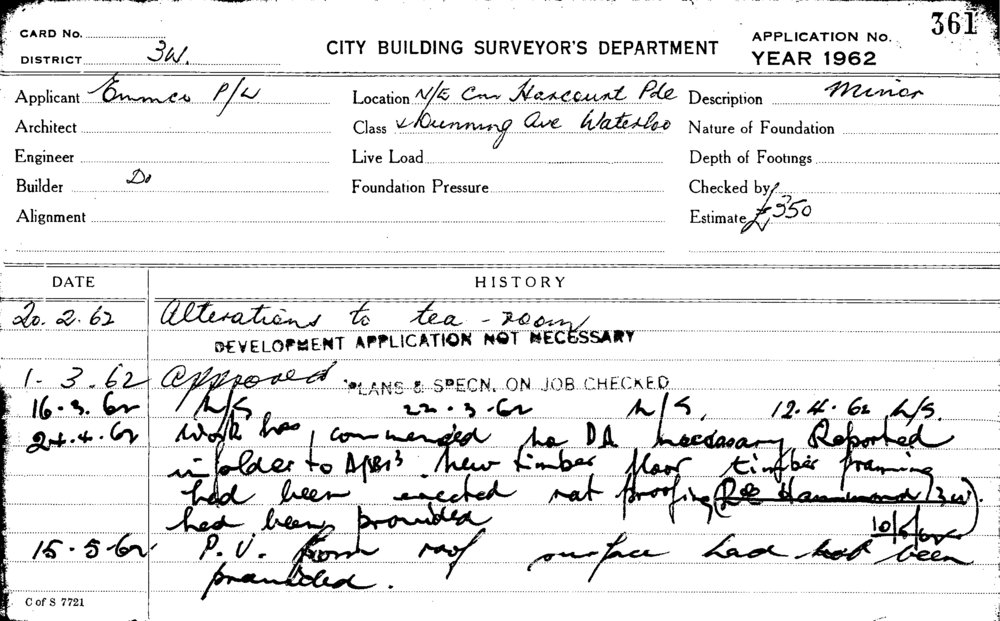 361
CARD No.
DISTRICT 3W.
CITY BUILDING SURVEYOR'S DEPARTMENT
APPLICATION No.
YEAR 1962
Applicant Emmco P/L Location N/E Cnr Harcourt Pde Description Minor
Architect Class & Dunning Ave Waterloo Nature of Foundation
Engineer Live Load Depth of Footings
Builder Do Foundation Pressure Checked by
Alignment Estimate £350
DATE HISTORY
20.2.62 Alterations to tea-room
DEVELOPMENT APPLICATION NOT NECESSARY
1.3.62 Approved PLANS & SPECN. ON JOB CHECKED
16.3.62 N/S 22.3.62 N/S, 12.4.62 N/S.
24.4.62 Work has commenced no DA necessary Reported
in folder to new timber floor timber framing
had been erected rat proofing (Hammond 3W).
had been provided 10/5/62
15.5.62 P.V. from roof surface had not been
provided.
C of S 7721